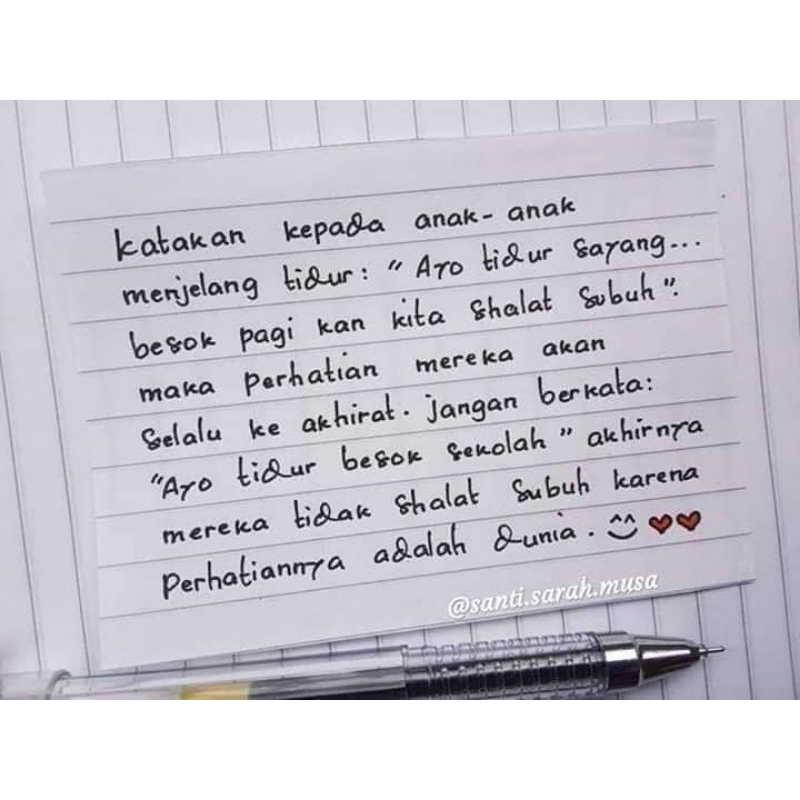 katakan kepada anak-anak
menjelang tidur: "Ayo tidur sayang...
besok pagi kan kita shalat subuh".
maka perhatian mereka akan
selalu ke akhirat. jangan berkata:
"Ayo tidur besok sekolah" akhirnya
mereka tidak shalat subuh karena
perhatiannya adalah dunia. ^^
@santi.sarah.musa